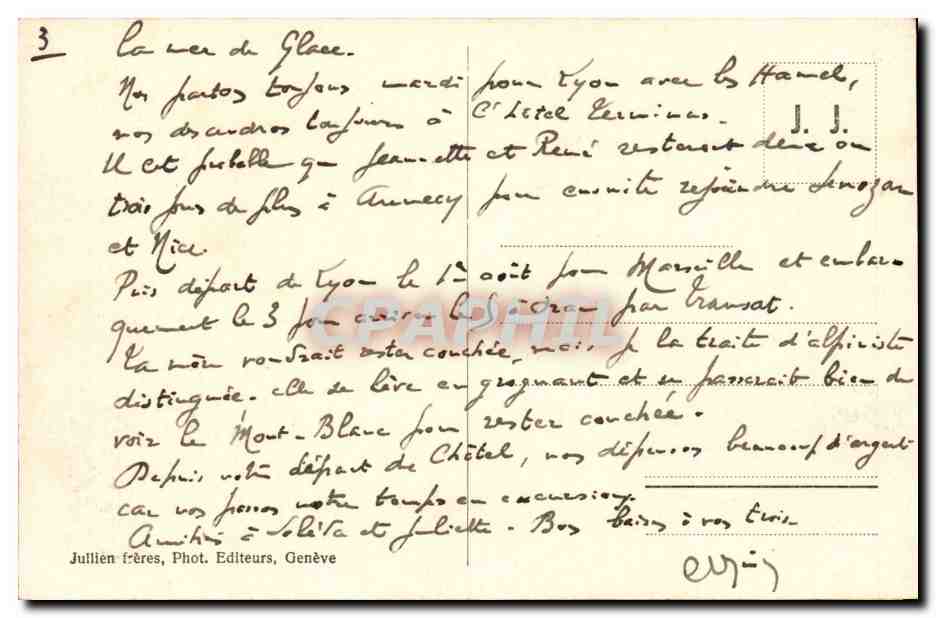 3
La mer de Glace.
Nous partons toujours mardi pour Lyon avec les Hamel,
nous descendrons toujours à l'hôtel Terminus.
J. J.
Il est probable que Jeannette et René resteront deux ou
trois jours de plus à Annecy pour ensuite rejoindre Senozan
et Nice.
Puis départ de Lyon le 1er août pour Marseille et embar-
quement le 3 pour arriver le 5 à Oran par Transat.
CPAPHIL
Ta mère voudrait rester couchée, mais je la traite d'alpiniste
distinguée. elle se lève en grognant et se passerait bien de
voir le Mont-Blanc pour rester couchée.
Depuis votre départ de Châtel, nous dépensons beaucoup d'argent
car nous passons notre temps en excursions.
Amitiés à et Juliette. Bons baisers à vous trois
Jullien frères, Phot. Editeurs, Genève